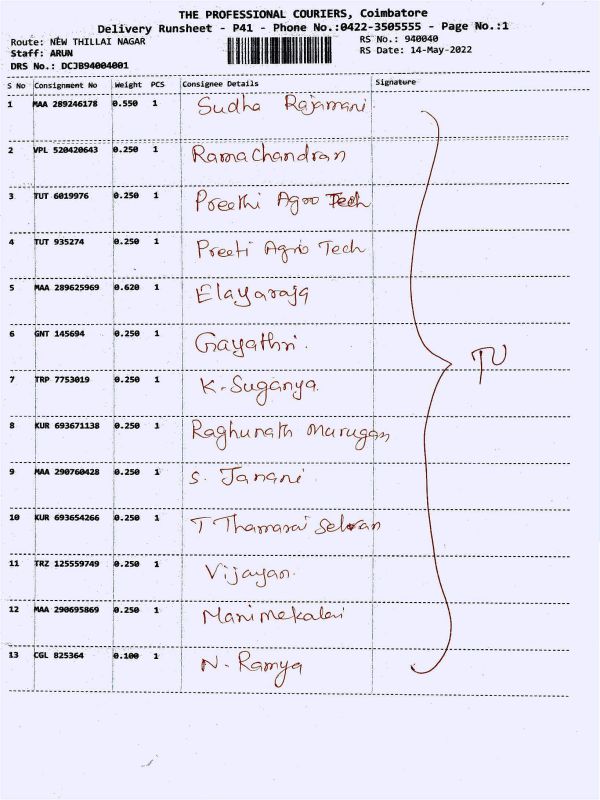 THE PROFESSIONAL COURIERS, Coimbatore
Delivery Runsheet - P41 - Phone No.:0422-3505555 - Page No.:1
Route: NEW THILLAI NAGAR RS No.: 940040
Staff: ARUN RS Date: 14-May-2022
DRS No.: DCJB94004001
S No Consignment No Weight PCS Consignee Details Signature
1 MAA 289246178 0.550 1 Sudha Rajamani.
2 VPL 520420643 0.250 1 Ramachandran
3 TUT 6019976 0.250 1 Preethi Agro Tech
4 TUT 935274 0.250 1 Preeti Agro Tech
5 MAA 289625969 0.620 1 Elayaraja
6 GNT 145694 0.250 1 Gayathri.
7 TRP 7753019 0.250 1 K. Suganya.
8 KUR 693671138 0.250 1 Raghunath Murugan
9 MAA 290760428 0.250 1 S. Janani
10 KUR 693654266 0.250 1 T Thamarai Selvan
11 TRZ 125559749 0.250 1 Vijayan.
12 MAA 290695869 0.250 1 Manimekalai
13 CGL 825364 0.100 1 N. Ramya